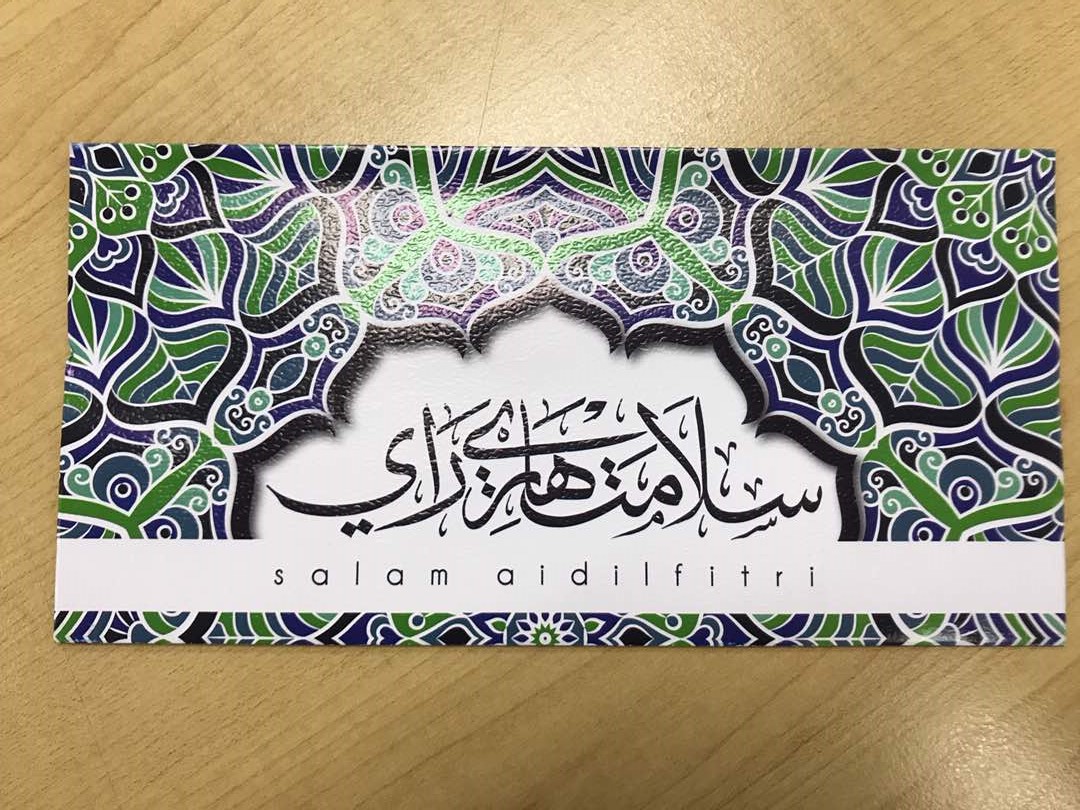 سلامت هاري راي
salam aidilfitri